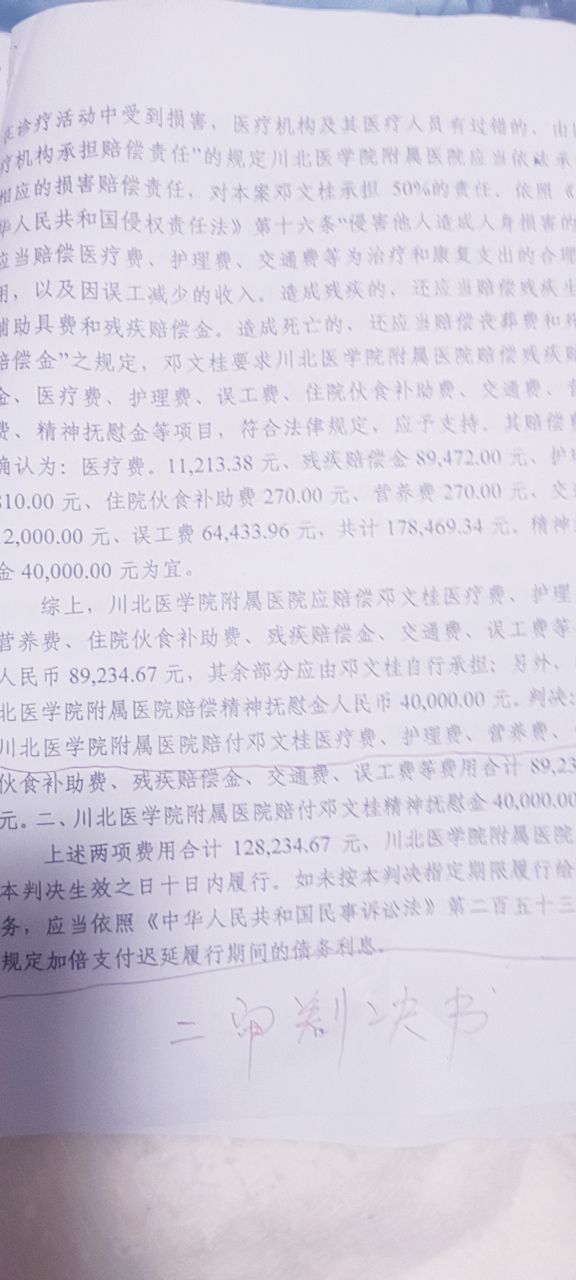 诊疗活动中受到损害，医疗机构及其医疗人员有过错的，由
疗机构承担赔偿责任”的规定川北医学院附属医院应当依法承
相应的损害赔偿责任，对本案邓文桂承担 50%的责任．依照《
华人民共和国侵权责任法》第十六条“侵害他人造成人身损害的
应当赔偿医疗费、护理费、交通费等为治疗和康复支出的合理
用，以及因误工减少的收入。造成残疾的，还应当赔偿残疾生
辅助具费和残疾赔偿金。造成死亡的，还应当赔偿丧葬费和死
赔偿金”之规定，邓文桂要求川北医学院附属医院赔偿残疾赔
金、医疗费、护理费、误工费、住院伙食补助费、交通费、营
费、精神抚慰金等项目，符合法律规定，应予支持．其赔偿费
确认为：医疗费。11,213.38 元、残疾赔偿金 89,472.00 元、护
810.00 元、住院伙食补助费 270.00 元、营养费 270.00 元、交
2,000.00 元、误工费 64,433.96 元，共计 178,469.34 元．精神
金 40,000.00 元为宜。
综上，川北医学院附属医院应赔偿邓文桂医疗费、护理
营养费、住院伙食补助费、残疾赔偿金、交通费、误工费等
人民币 89,234.67 元，其余部分应由邓文桂自行承担；另外，
北医学院附属医院赔偿精神抚慰金人民币 40,000.00 元．判决：
川北医学院附属医院赔付邓文桂医疗费、护理费、营养费、
伙食补助费、残疾赔偿金、交通费、误工费等费用合计 89,23
元。二、川北医学院附属医院赔付邓文桂精神抚慰金 40,000.00
上述两项费用合计 128,234.67 元，川北医学院附属医院
本判决生效之日十日内履行。如未按本判决指定期限履行给
务，应当依照《中华人民共和国民事诉讼法》第二百五十三
规定加倍支付迟延履行期间的债务利息。
二审判决书